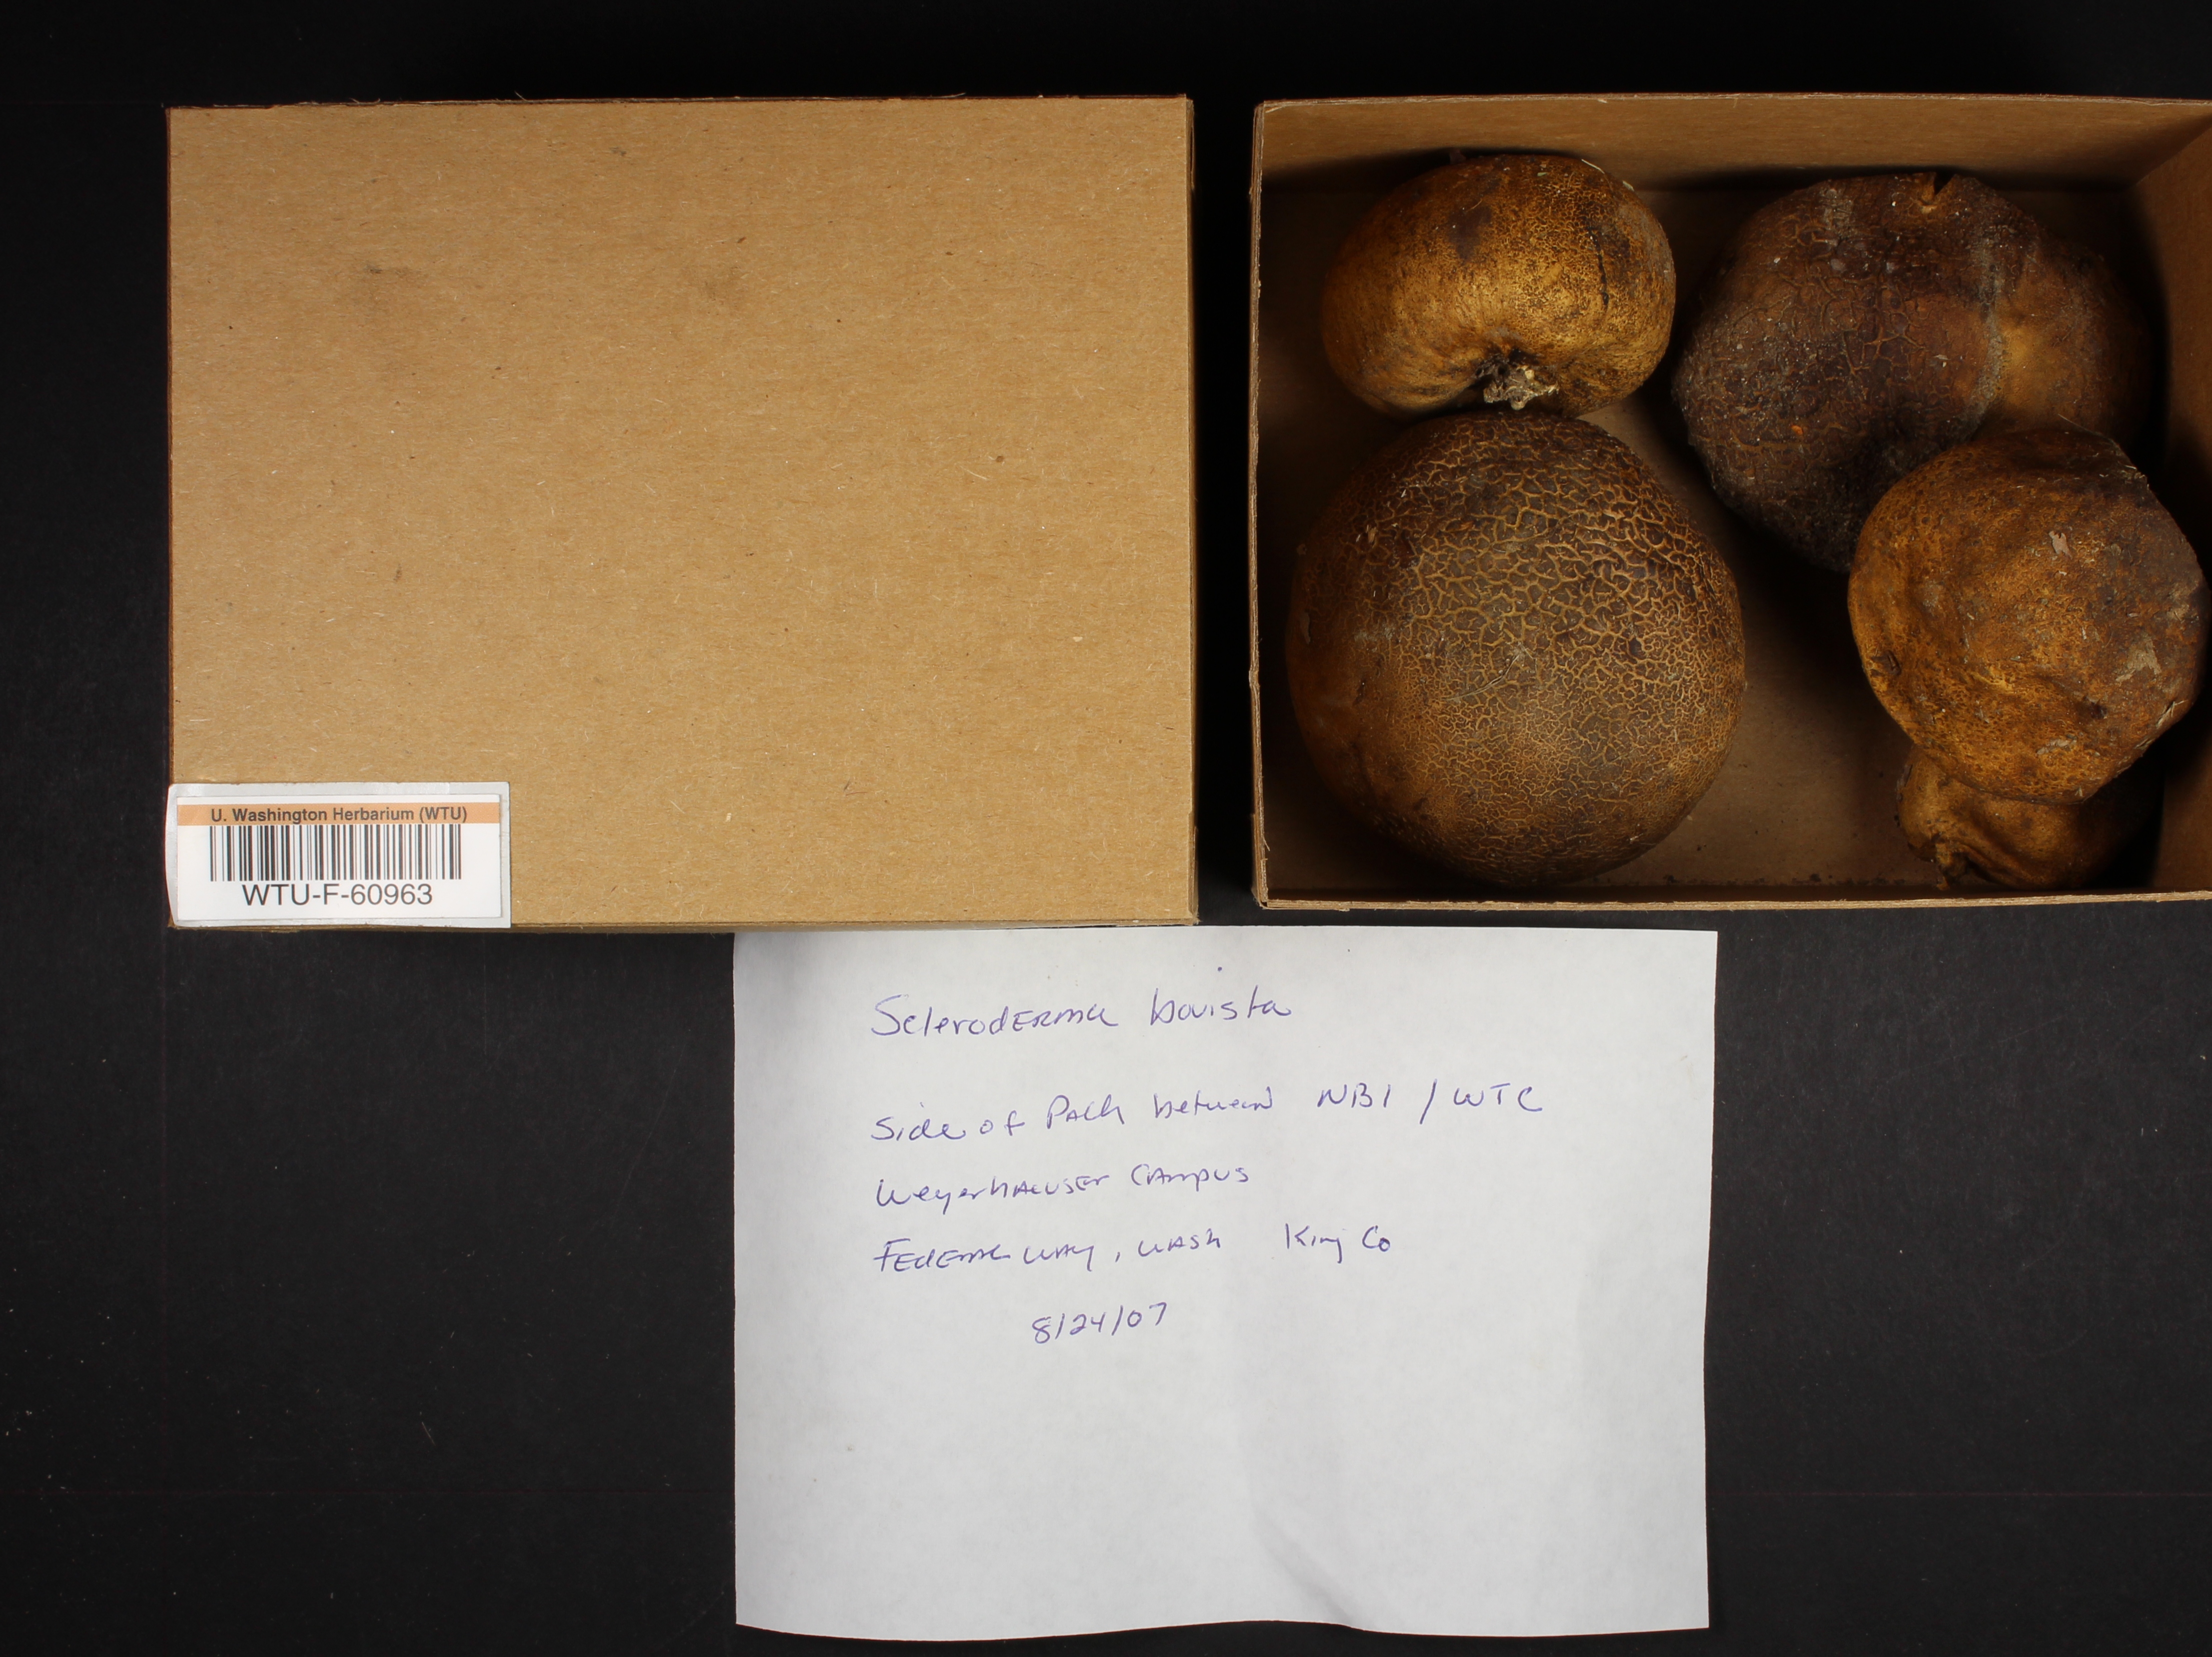 U. Washington Herbarium (WTU)
WTU-F-60963
Scleroderma bovista
Side of Path between NB1 / WTC
Weyerhaeuser Campus
Federal Way, Wash King Co
8/24/07